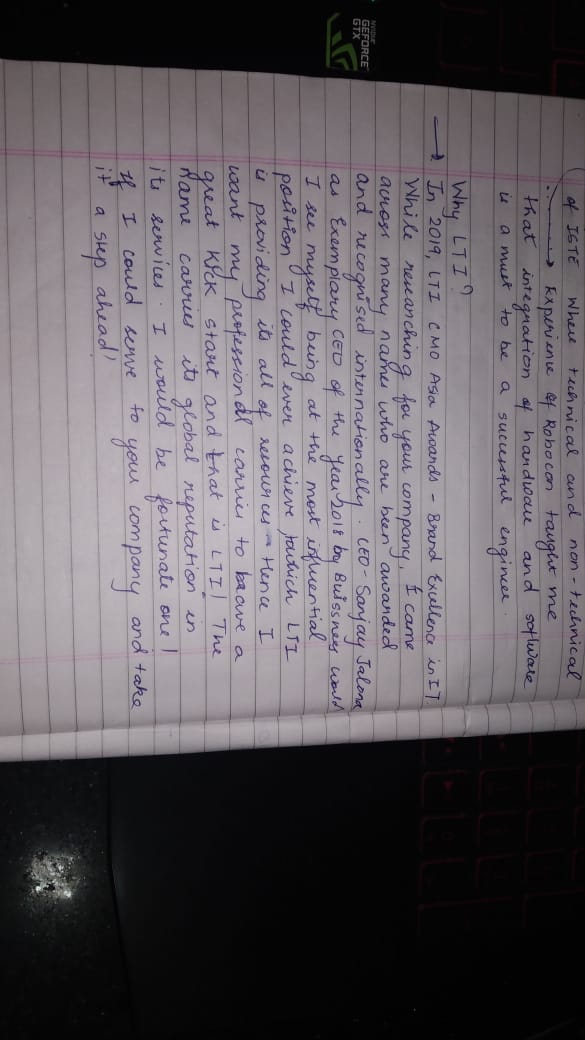 of ISTE where technical and non-technical
Experience of Robocon taught me
that integration of hardware and software
is a must to be a successful engineer.
Why LTI?
→ In 2019, LTI CMO Asia Awards - Brand Excellence in IT.
While researching for your company, I came
across many names who are been awarded
and recognised internationally. CEO - Sanjay Jalona
as Exemplary CEO of the year 2018 by Buissness world
I see myself being at the most influential
position I could ever achieve towich LTI
is providing its all of resources. Hence I
want my professional carrier to have a
great kick start and that is LTI! The
Name carries its global reputation in
its services. I would be fortunate one!
If I could serve to your company and take
it a step ahead!
NVIDIA
GEFORCE
GTX